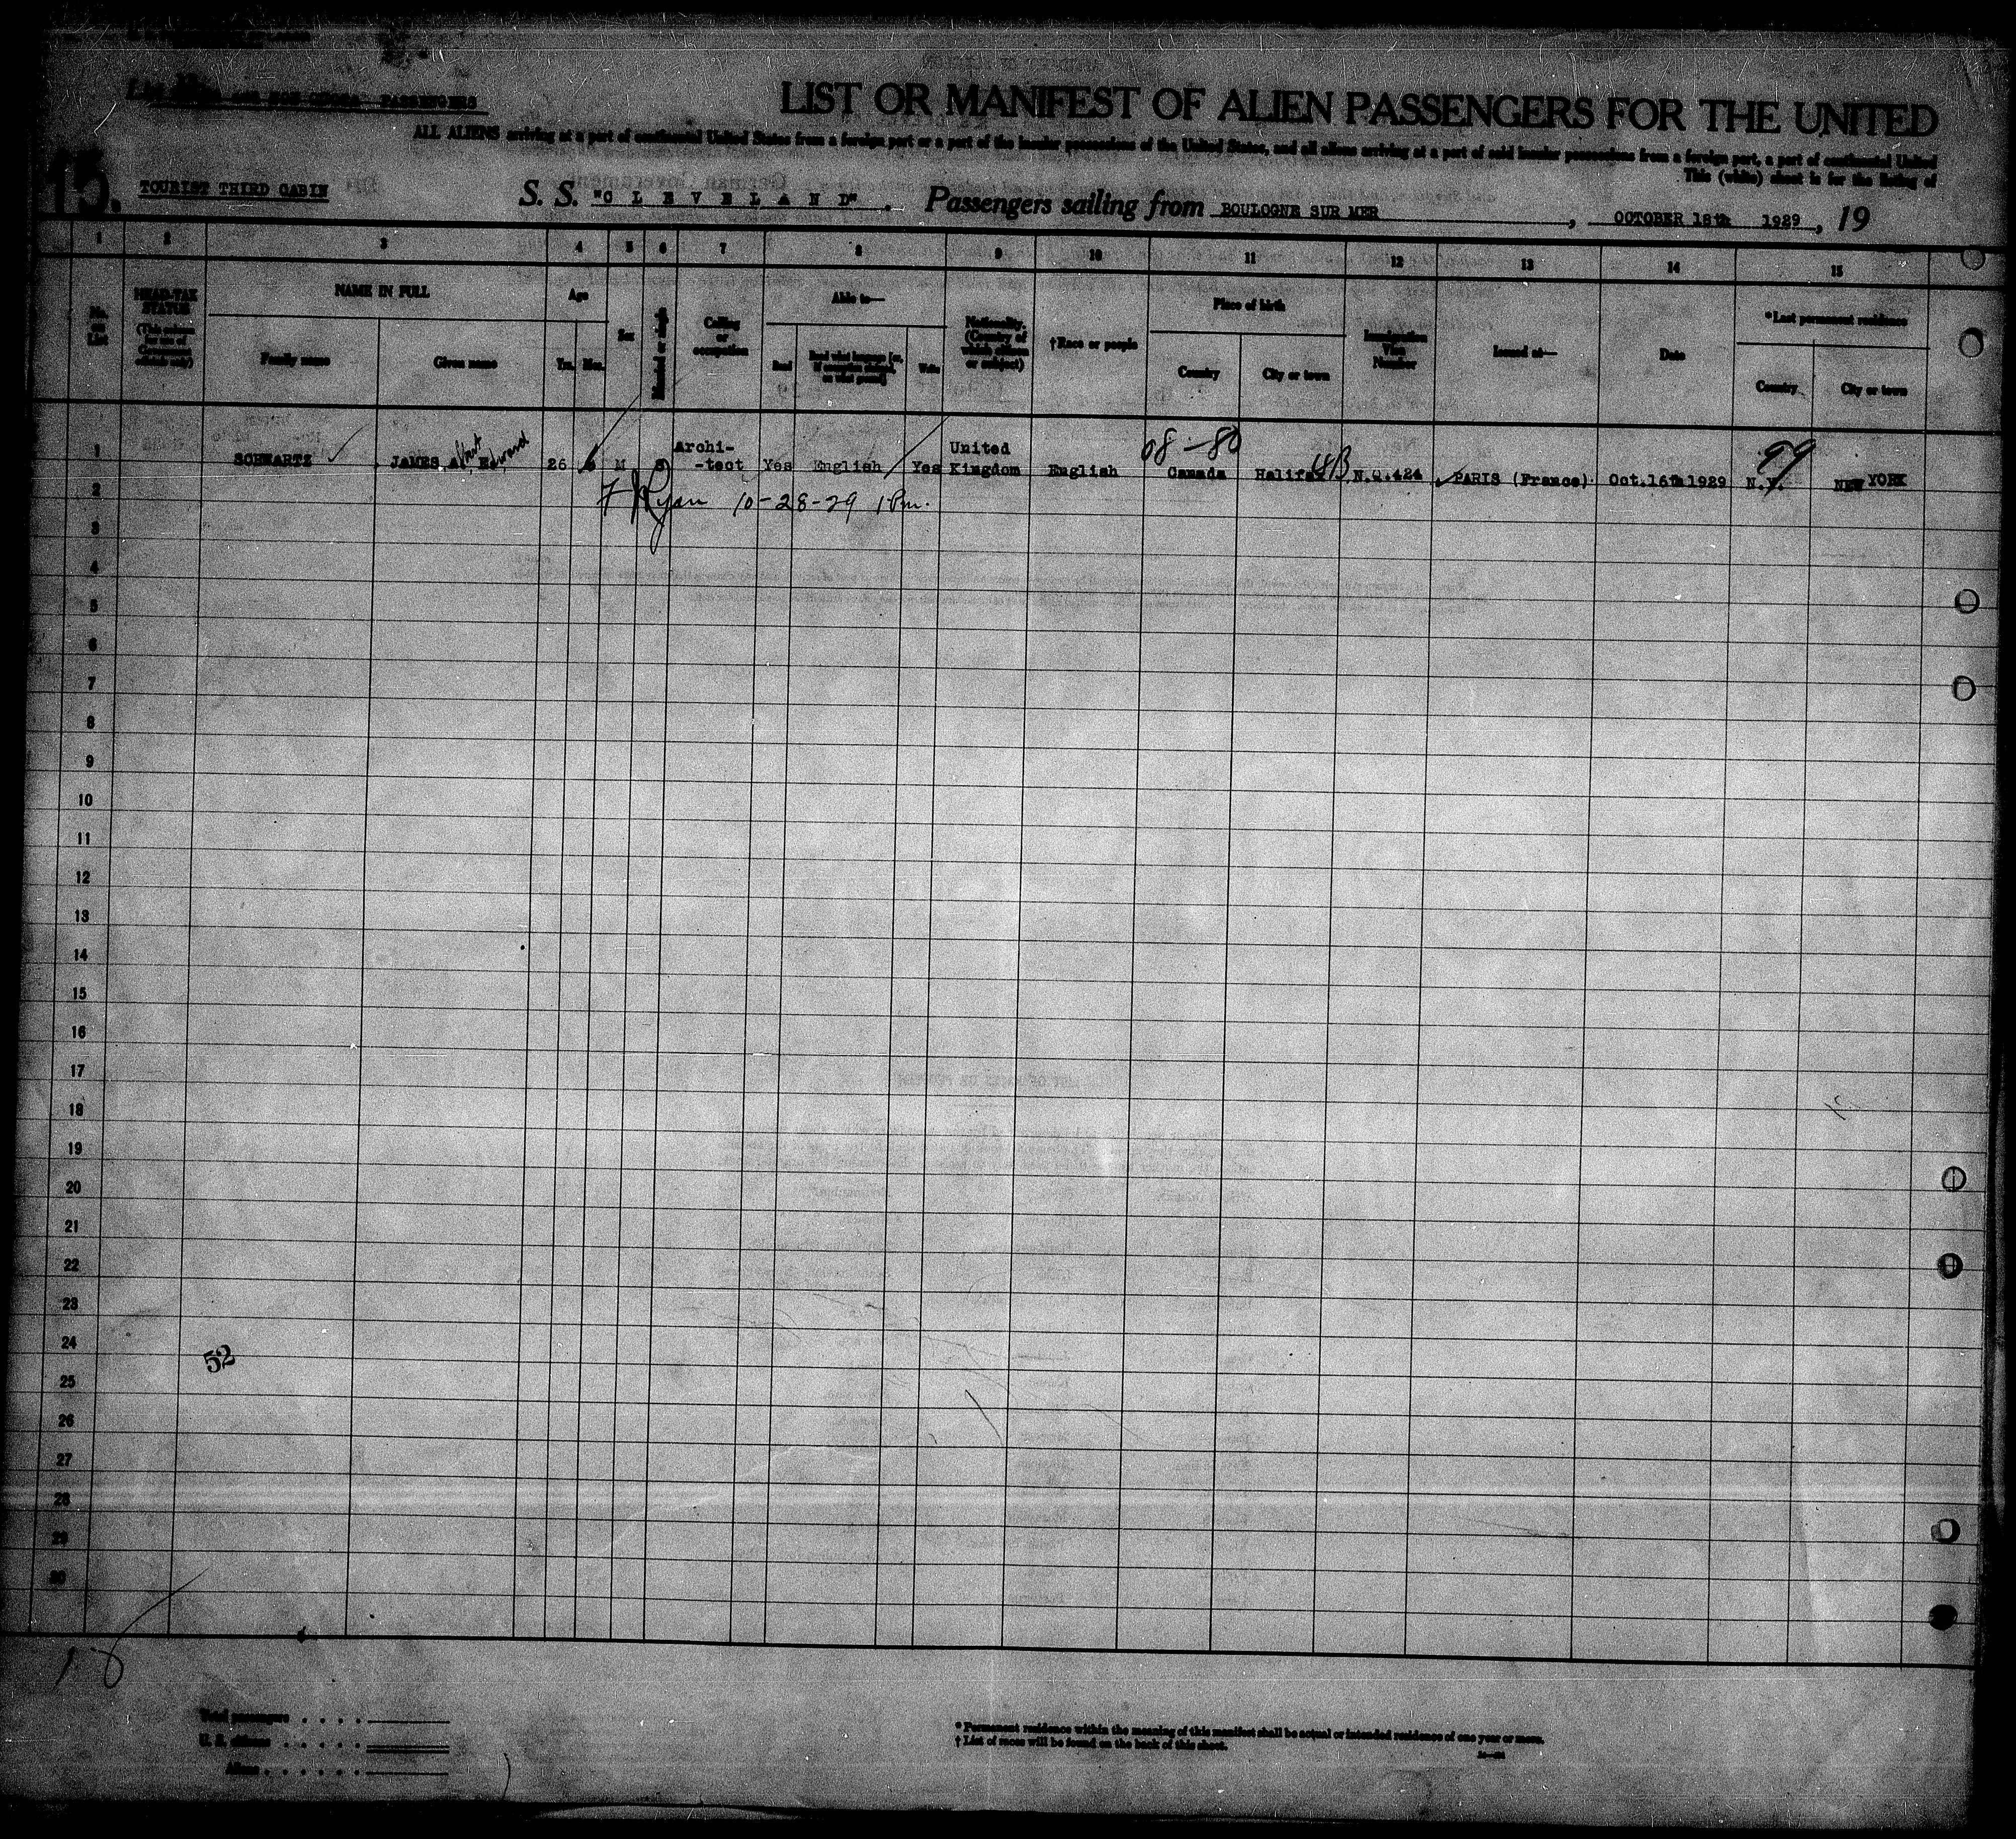 PASSENGERS
LIST OR MANIFEST OF ALIEN PASSENGERS FOR THE UNITED
ALL ALIENS arriving at a port of continental United States from a foreign port or a port of the insular possessions of the United States, and all aliens arriving at a port of said insular possessions from a foreign port, a port of continental United
This (white) sheet is for the listing of
15.
TOURIST THIRD CABIN
S. S. "CLEVELAND". Passengers sailing from BOULOGNE SUR MER, OCTOBER 18th 1929, 19
1 2 3 4 5 6 7 8 9 10 11 12 13 14 15
No. on List
HEAD-TAX STATUS
(This column for use of Government officials only)
NAME IN FULL
Family name
Given name
Age
Yrs. Mos.
Sex
Married or single
Calling or occupation
Able to—
Read
Read what language [or, if exemption claimed, on what ground]
Write
Nationality. (Country of which citizen or subject)
†Race or people
Place of birth
Country
City or town
Immigration Visa Number
Issued at—
Date
*Last permanent residence
Country
City or town
08-80
99
1 SCHWARTZ JAMES Albert Edward 26 M S Archi- -tect Yes English Yes United Kingdom English Canada Halifax N.Q.424 PARIS (France) Oct.16th 1929 N.Y. NEW YORK
2 Ryan 10-28-29 1 Pm.
3
4
5
6
7
8
9
10
11
12
13
14
15
16
17
18
19
20
21
22
23
24
52
25
26
27
28
29
30
Total passengers
U. S. citizens
Aliens
* Permanent residence within the meaning of this manifest shall be actual or intended residence of one year or more.
† List of races will be found on the back of this sheet.